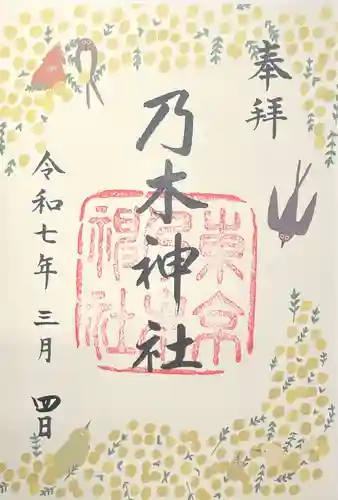 奉拝
乃木神社
東京乃木神社
令和七年三月四日